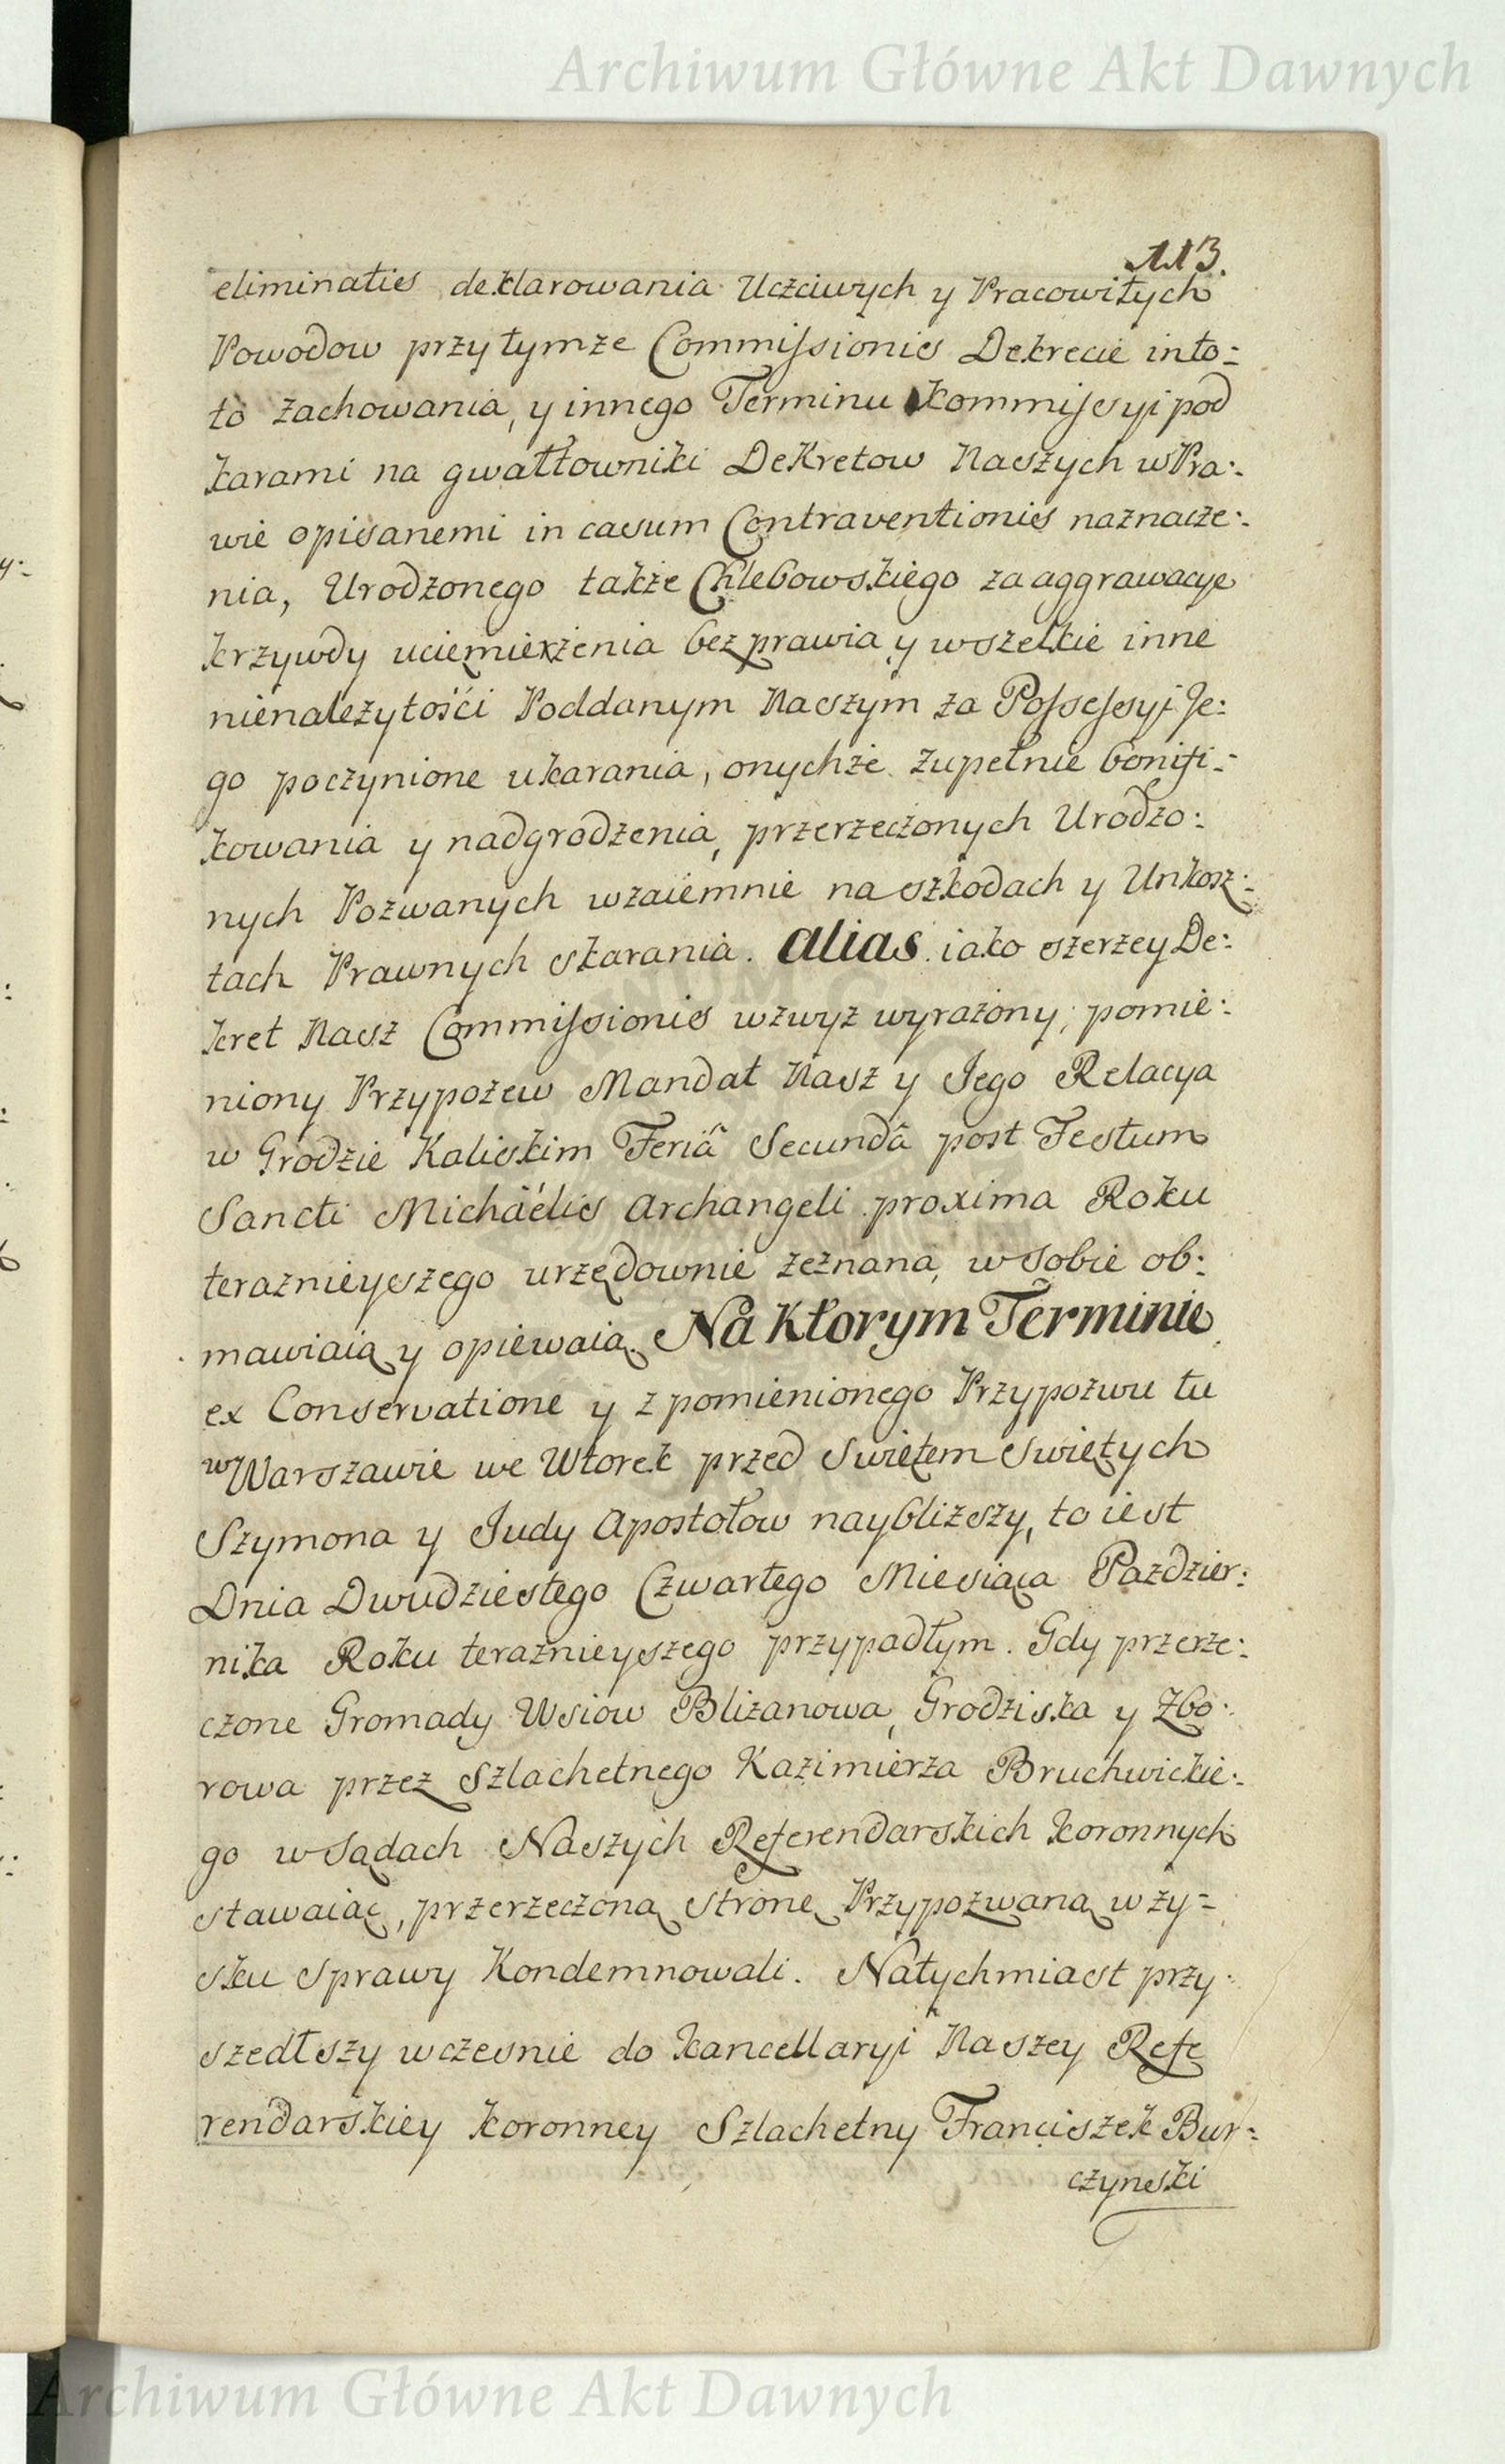 Archiwum Główne Akt Dawnych
113.
eliminaties deklarowania Uczciwych y Pracowitych
Powodow przy tymże Commissionis Dekrecie in to:
to zachowania, y innego Terminu Kommissyi pod
karami na gwałtowniki Dekretow Naszych w Pra:
wie opisanemi in casum Contraventionis naznacze:
nia, Urodzonego także Chlebowskiego za aggrawacye
krzywdy uciemiężenia bezprawia y wszelkie inne
nienależytości Poddanym Naszym za Possessyi Je:
go poczynione ukarania, onychże zupełnie bonifi:
kowania y nadgrodzenia, przerzeczonych Urodzo:
nych Pozwanych wzaiemnie na szkodach y Unkosz:
tach Prawnych skarania. Alias iako szerzey De:
kret Nasz Commissionis wzwyż wyrażony, pomie:
niony Przypozew Mandat Nasz y Jego Relacya
w Grodzie Kaliskim Feriâ Secundâ post Festum
Sancti Michaëlis Archangeli proxima Roku
teraznieyszego urzędownie zeznana, w sobie ob:
mawiaią y opiewaią. Na Ktorym Terminie
ex Conservatione y z pomienionego Przypozwu tu
w Warszawie we Wtorek przed Swiętem Swiętych
Szymona y Judy Apostołow naybliższy, to iest
Dnia Dwudziestego Czwartego Miesiąca Pazdzier:
nika Roku teraznieyszego przypadłym. Gdy przerze:
czone Gromady Wsiow Bliżanowa, Grodziska y Zbo:
rowa przez Szlachetnego Kazimierza Bruchwickie:
go w Sądach Naszych Referendarskich Koronnych
stawaiąc, przerzeczoną Stronę Przypozwaną w zy:
sku Sprawy Kondemnowali. Natychmiast przy:
szedłszy wczesnie do Kancellaryi Naszey Refe
rendarskiey Koronney Szlachetny Franciszek Bur:
czynski
Archiwum Główne Akt Dawnych